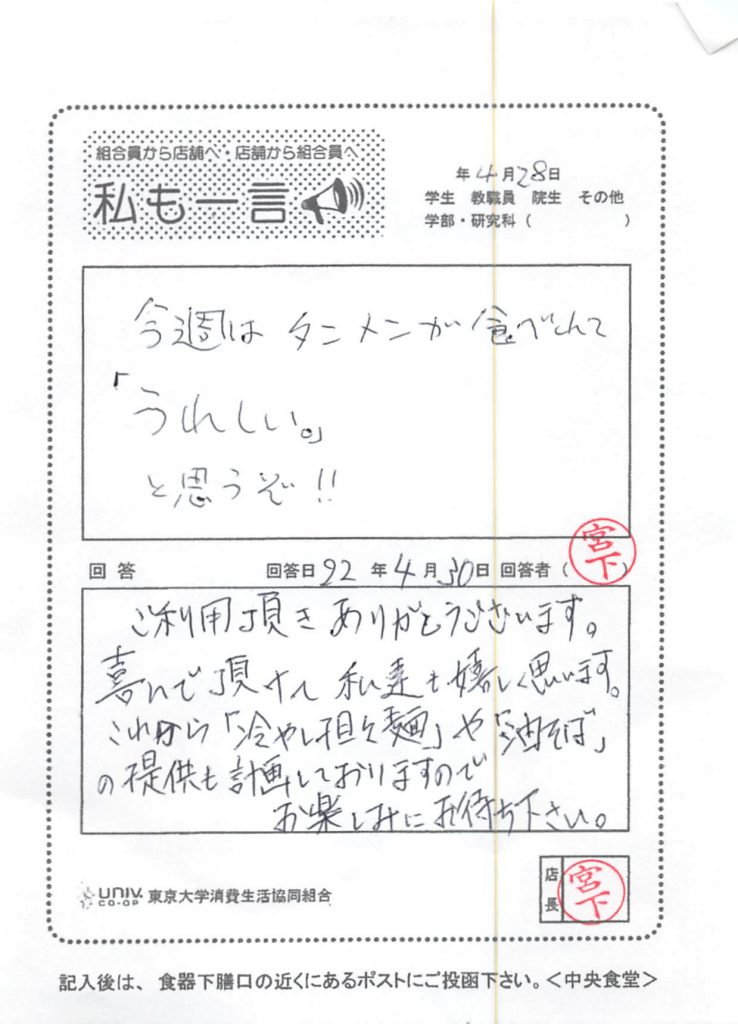 組合員から店舗へ・店舗から組合員へ
私も一言
年4月28日
学生 教職員 院生 その他
学部・研究科( )
今週は タンメンが 食べとんて
「うれしい。」
と思うぞ!!
回答 回答日22年4月30日 回答者(宮下)
ご利用頂きありがとうございます。
喜んで頂けて 私達も嬉しく思います。
これから「冷やし担々麺」や「油そば」
の提供も計画しておりますので
お楽しみにお待ち下さい。
UNIV. CO-OP 東京大学消費生活協同組合
店長 宮下
記入後は、食器下膳口の近くにあるポストにご投函下さい。<中央食堂>